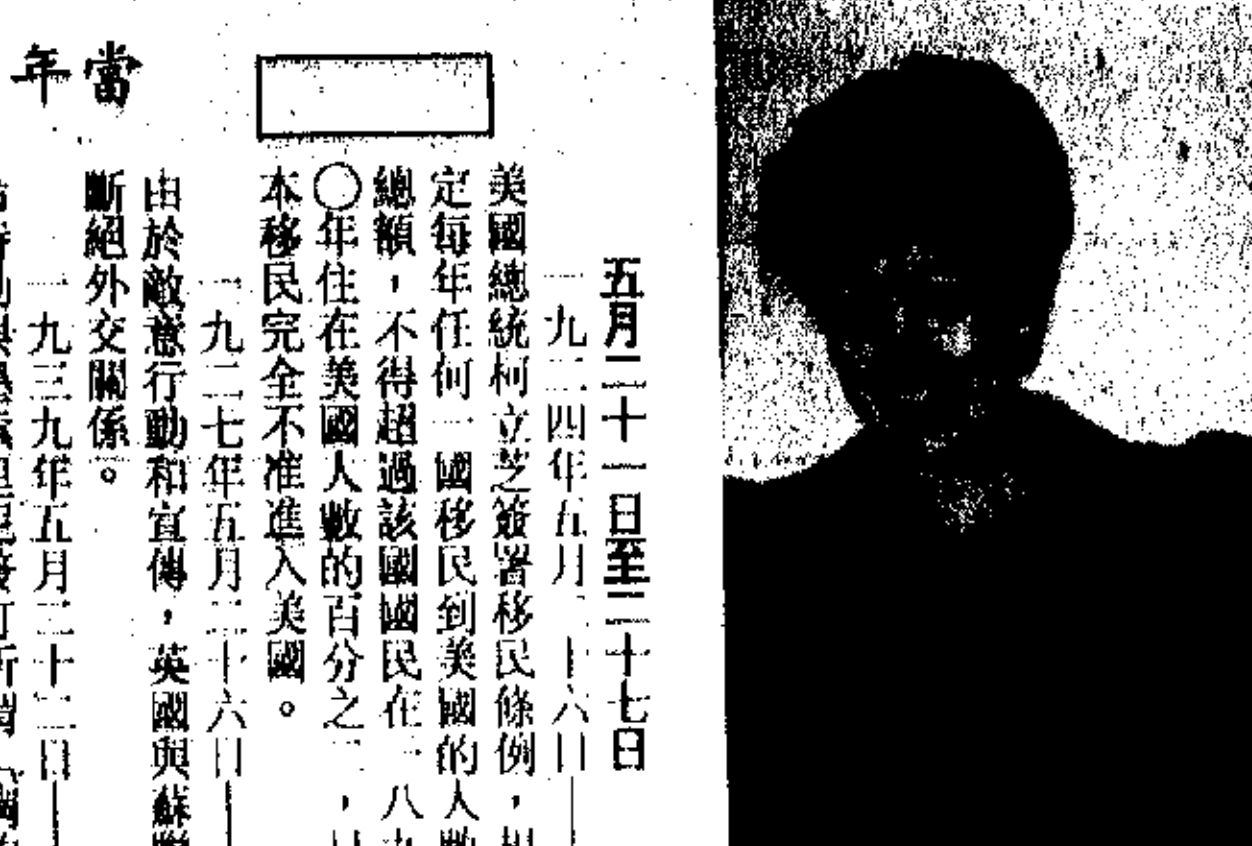 當年
五月二十一日至二十七日
一九二四年五月二十六日—
美國總統柯立芝簽署移民條例，
定每年任何一國移民到美國的人數
總額，不得超過該國國民在一八九
〇年住在美國人數的百分之二，日
本移民完全不准進入美國。
一九二七年五月二十六日—
由於敵意行動和宣傳，英國與蘇聯
斷絕外交關係。
一九三九年五月二十二日—